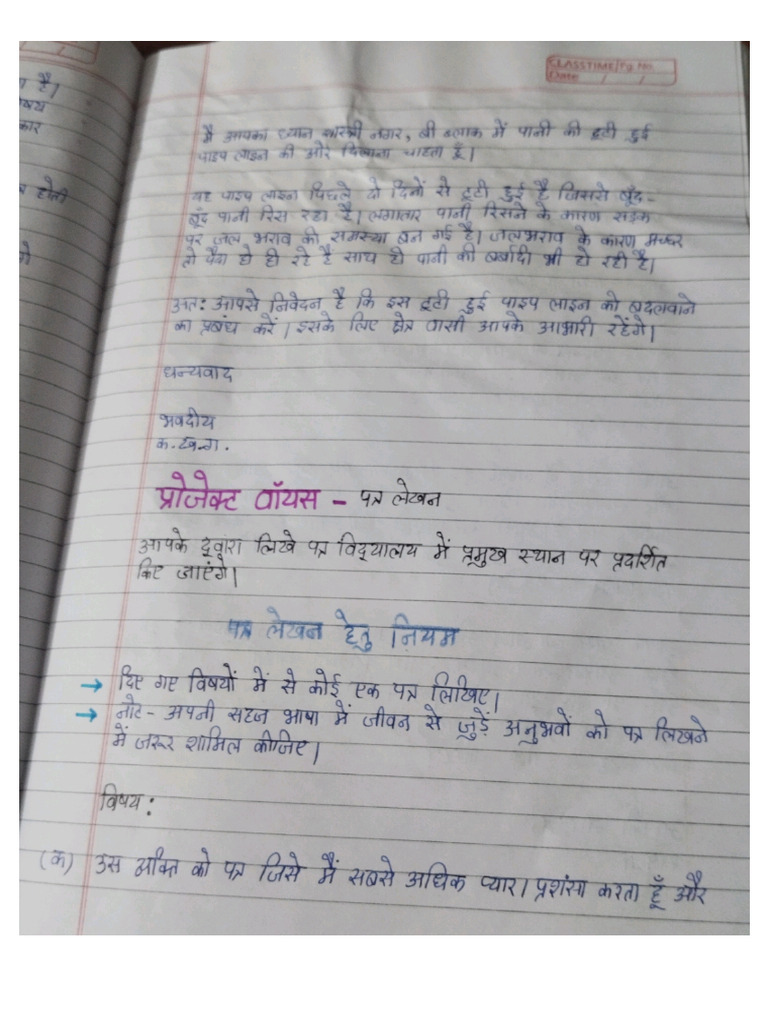 है।
विषय
कार
होती
CLASSTIME/Pg. No.
Date / /
मै आपका ध्यान शास्त्री नगर, बी ब्लाक में पानी की टूटी हुई
पाइप लाइन की ओर दिलाना चाहता हूँ।
यह पाइप लाइन पिछले दो दिनों से टूटी हुई है जिससे बूँद-
बूँद पानी रिस रहा है। लगातार पानी रिसने के कारण सड़क
पर जल भराव की समस्या बन गई है। जलभराव के कारण मच्छर
तो पैदा हो ही रहे हैं साथ ही पानी की बर्बादी भी हो रही है।
अतः आपसे निवेदन है कि इस टूटी हुई पाइप लाइन को बदलवाने
का प्रबंध करें। इसके लिए क्षेत्र वासी आपके आभारी रहेंगे।
धन्यवाद
भवदीय
क.ख.ग.
प्रोजेक्ट वॉयस - पत्र लेखन
आपके द्वारा लिखे पत्र विद्यालय में प्रमुख स्थान पर प्रदर्शित
किए जाएंगे।
पत्र लेखन हेतु नियम
→ दिए गए विषयों में से कोई एक पत्र लिखिए।
→ नोट - अपनी सहज भाषा में जीवन से जुड़ें अनुभवों को पत्र लिखने
में जरूर शामिल कीजिए।
विषय :
(क) उस व्यक्ति को पत्र जिसे मैं सबसे अधिक प्यार। प्रशंसा करता हूँ और